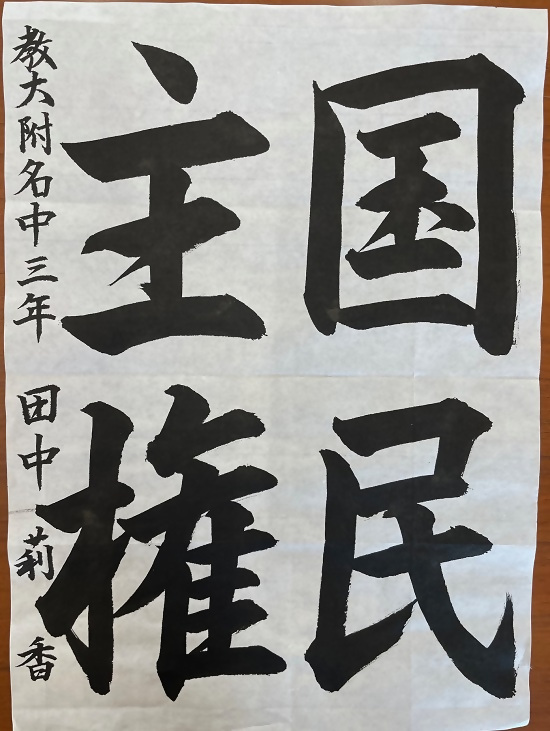 国民
主権
教大附名中三年 田中莉香